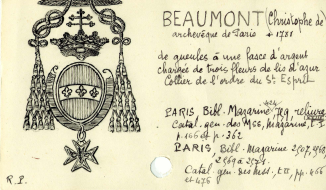 BEAUMONT (Christophe de)
archevêque de Paris + 1781
de gueules à une fasce d'argent
chargée de trois fleurs de lis d'azur
Collier de l'ordre du St Esprit
PARIS. Bibl. Mazarine reliure
Catal. gén. des Mss, Mazarine, t. I
p 166 et p. 362
PARIS. Bibl. Mazarine
Catal. gén. des
et 476
R.P.